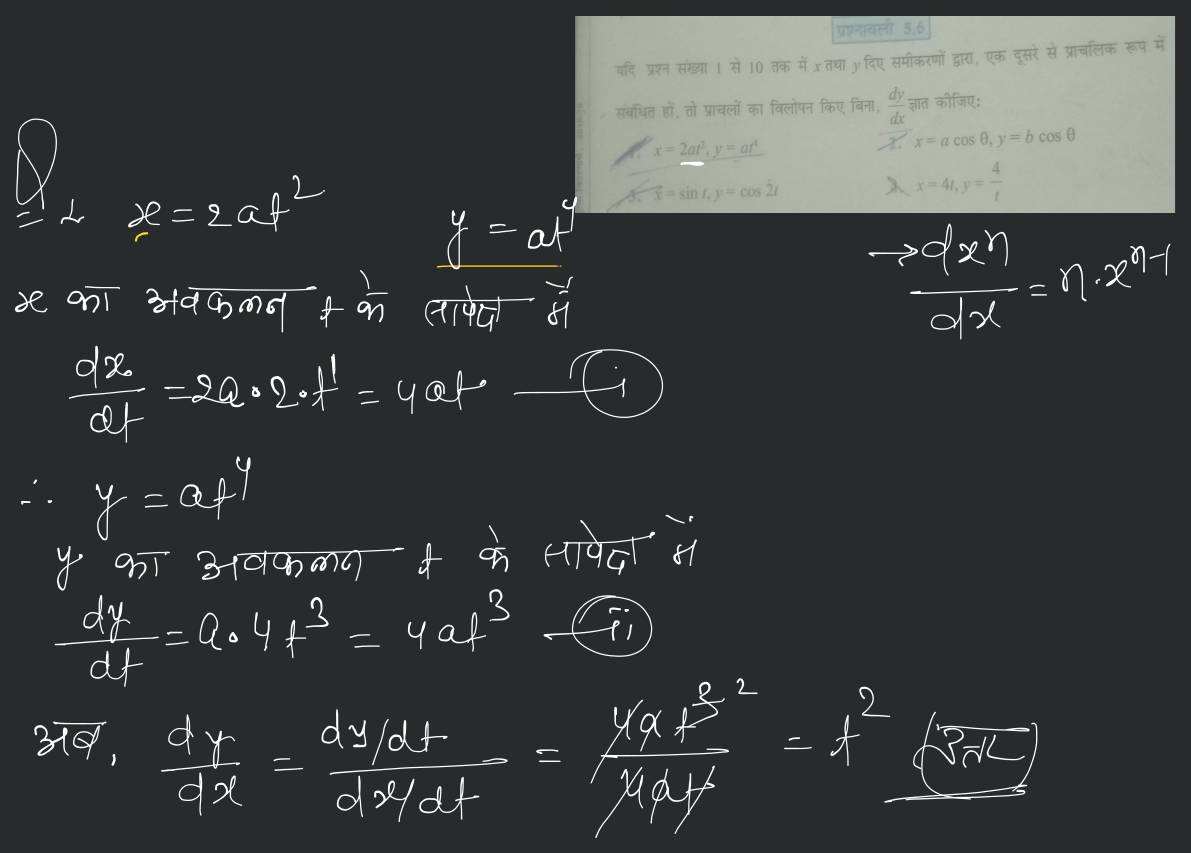 प्रश्नावली 5.6
यदि प्रश्न संख्या 1 से 10 तक में x तथा y दिए समीकरणों द्वारा, एक दूसरे से प्राचलिक रूप में
संबंधित हों, तो प्राचलों का विलोपन किए बिना, dy/dx ज्ञात कीजिए:
1. x = 2at², y = at⁴
2. x = a cos θ, y = b cos θ
3. x = sin t, y = cos 2t
x = 4t, y = 4/t
x = 2at²
y = at⁴
→ dxⁿ/dx = n·xⁿ⁻¹
x का अवकलन t के सापेक्ष में
dx/dt = 2a·2·t¹ = 4at — i
∴ y = at⁴
y का अवकलन t के सापेक्ष में
dy/dt = a·4t³ = 4at³ — ii
अब, dy/dx = dy/dt / dx/dt = 4at³ ² / 4at = t² उत्तर